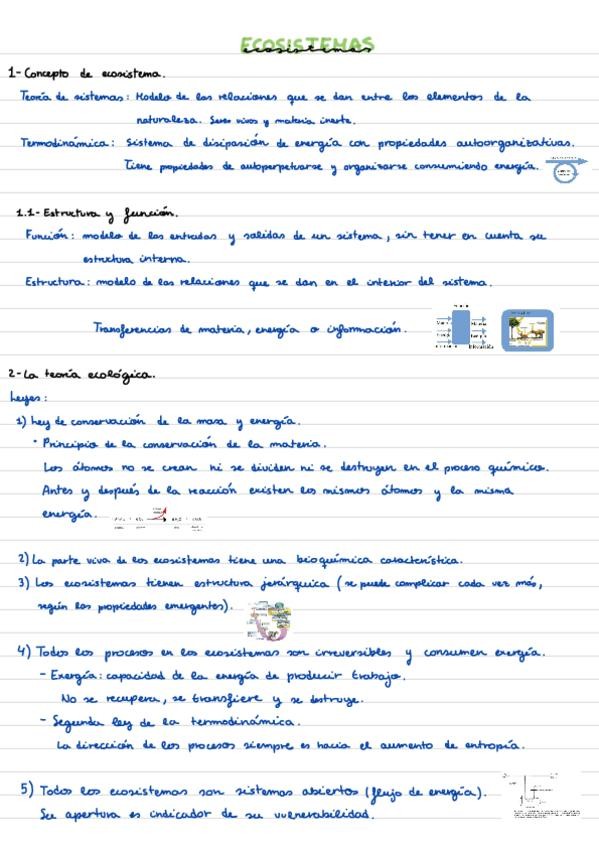 ECOSISTEMAS
ecosistemas
1- Concepto de ecosistema.
Teoría de sistemas: Modelo de las relaciones que se dan entre los elementos de la
naturaleza. Seres vivos y materia inerte.
Termodinámica: Sistema de disipasión de energía con propiedades autoorganizativas.
Tiene propiedades de autoperpetuarse y organizarse consumiendo energía.
1.1- Estructura y función.
Función: modelo de las entradas y salidas de un sistema, sin tener en cuenta su
estructura interna.
Estructura: modelo de las relaciones que se dan en el interior del sistema.
Transferencias de materia, energía o información.
2- La teoría ecológica.
Leyes:
1) Ley de conservación de la masa y energía.
· Principio de la conservación de la materia.
Los átomos no se crean ni se dividen ni se destruyen en el proceso químico.
Antes y después de la reacción existen los mismos átomos y la misma
energía.
2) La parte viva de los ecosistemas tiene una bioquímica característica.
3) Los ecosistemas tienen estructura jerárquica (se puede complicar cada vez más,
según las propiedades emergentes).
4) Todos los procesos en los ecosistemas son irreversibles y consumen exergía.
- Exergía: capacidad de la energía de producir trabajo.
No se recupera, se transfiere y se destruye.
- Segunda ley de la termodinámica.
La dirección de los procesos siempre es hacia el aumento de entropía.
5) Todos los ecosistemas son sistemas abiertos (flujo de energía).
Su apertura es indicador de su vulnerabilidad.